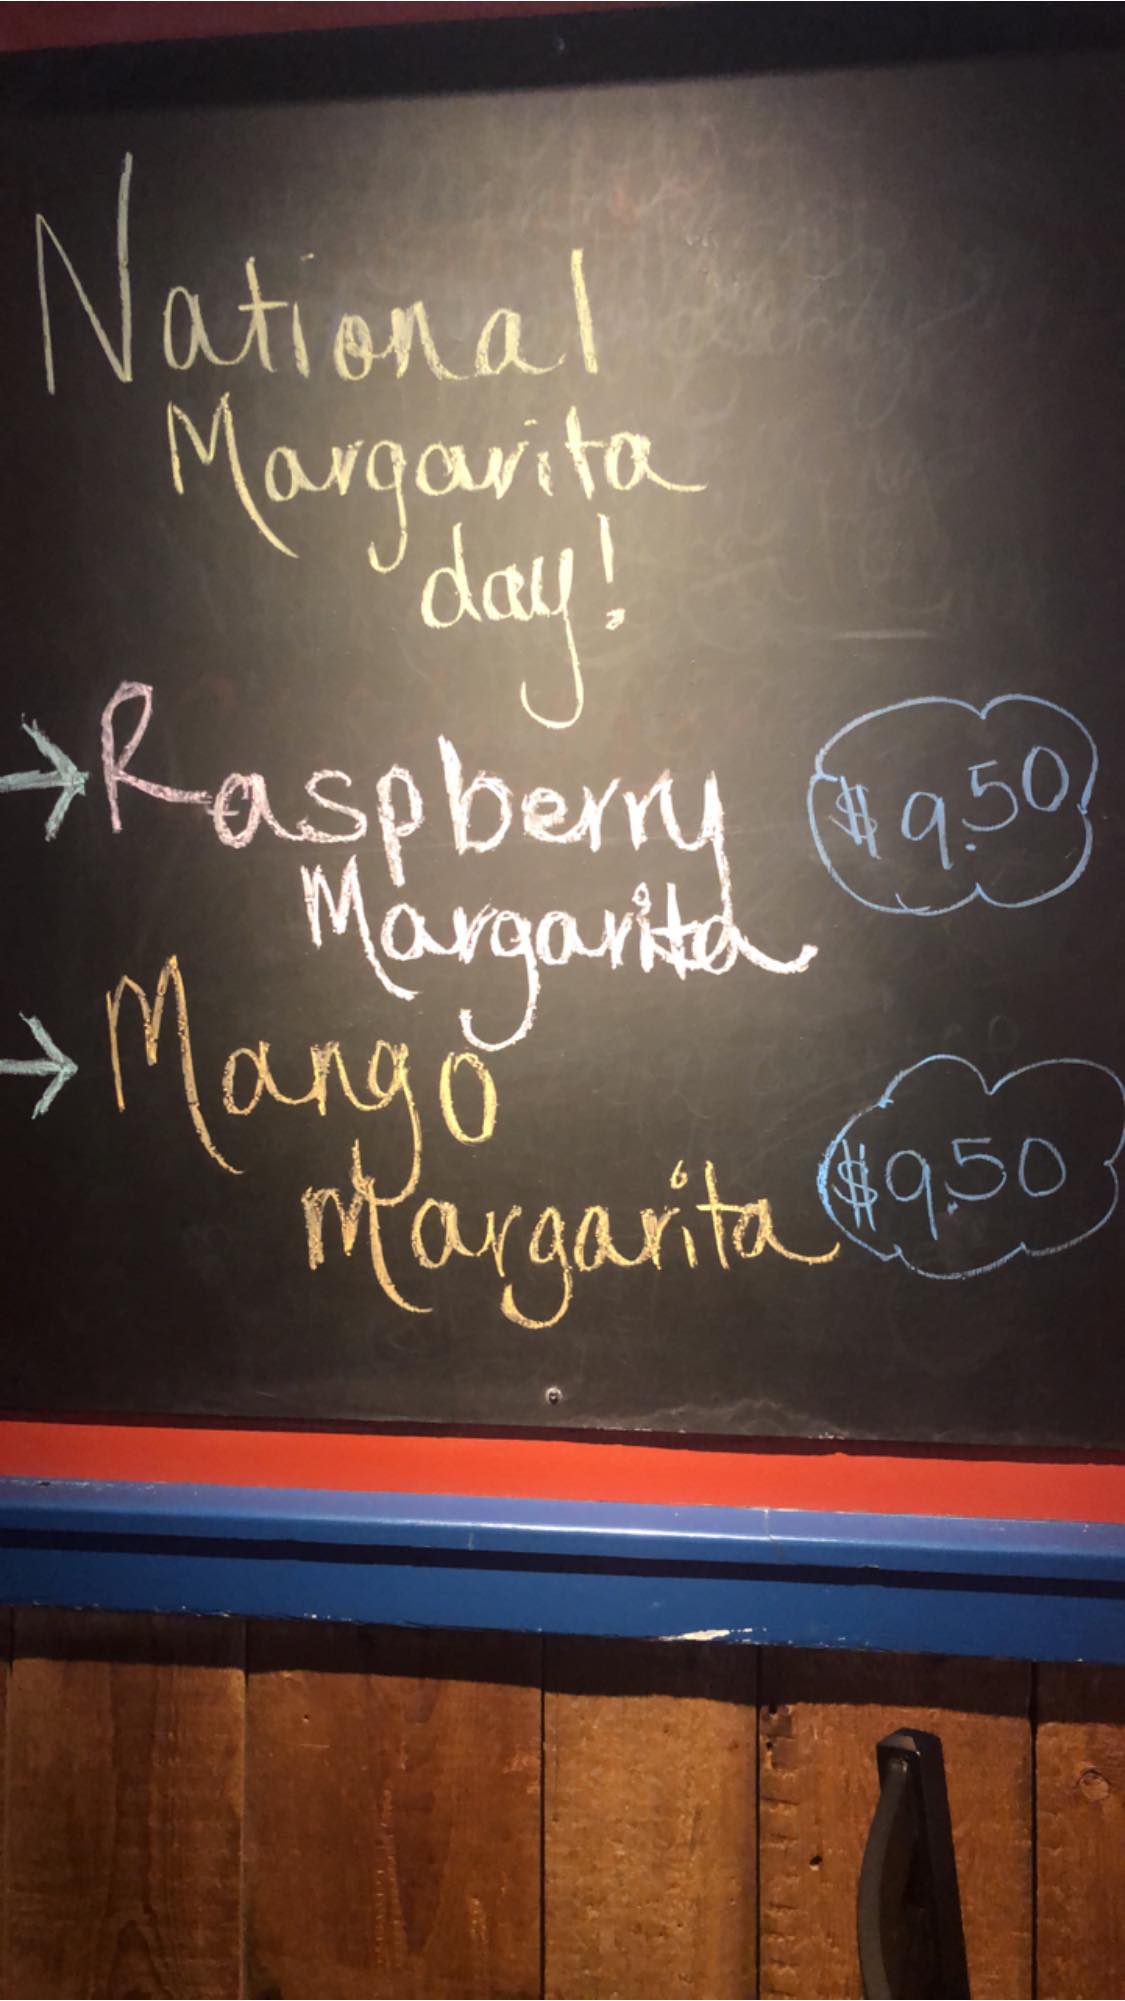 National
Margarita
day!
→ Raspberry $9.50
Margarita
→ Mango
Margarita $9.50